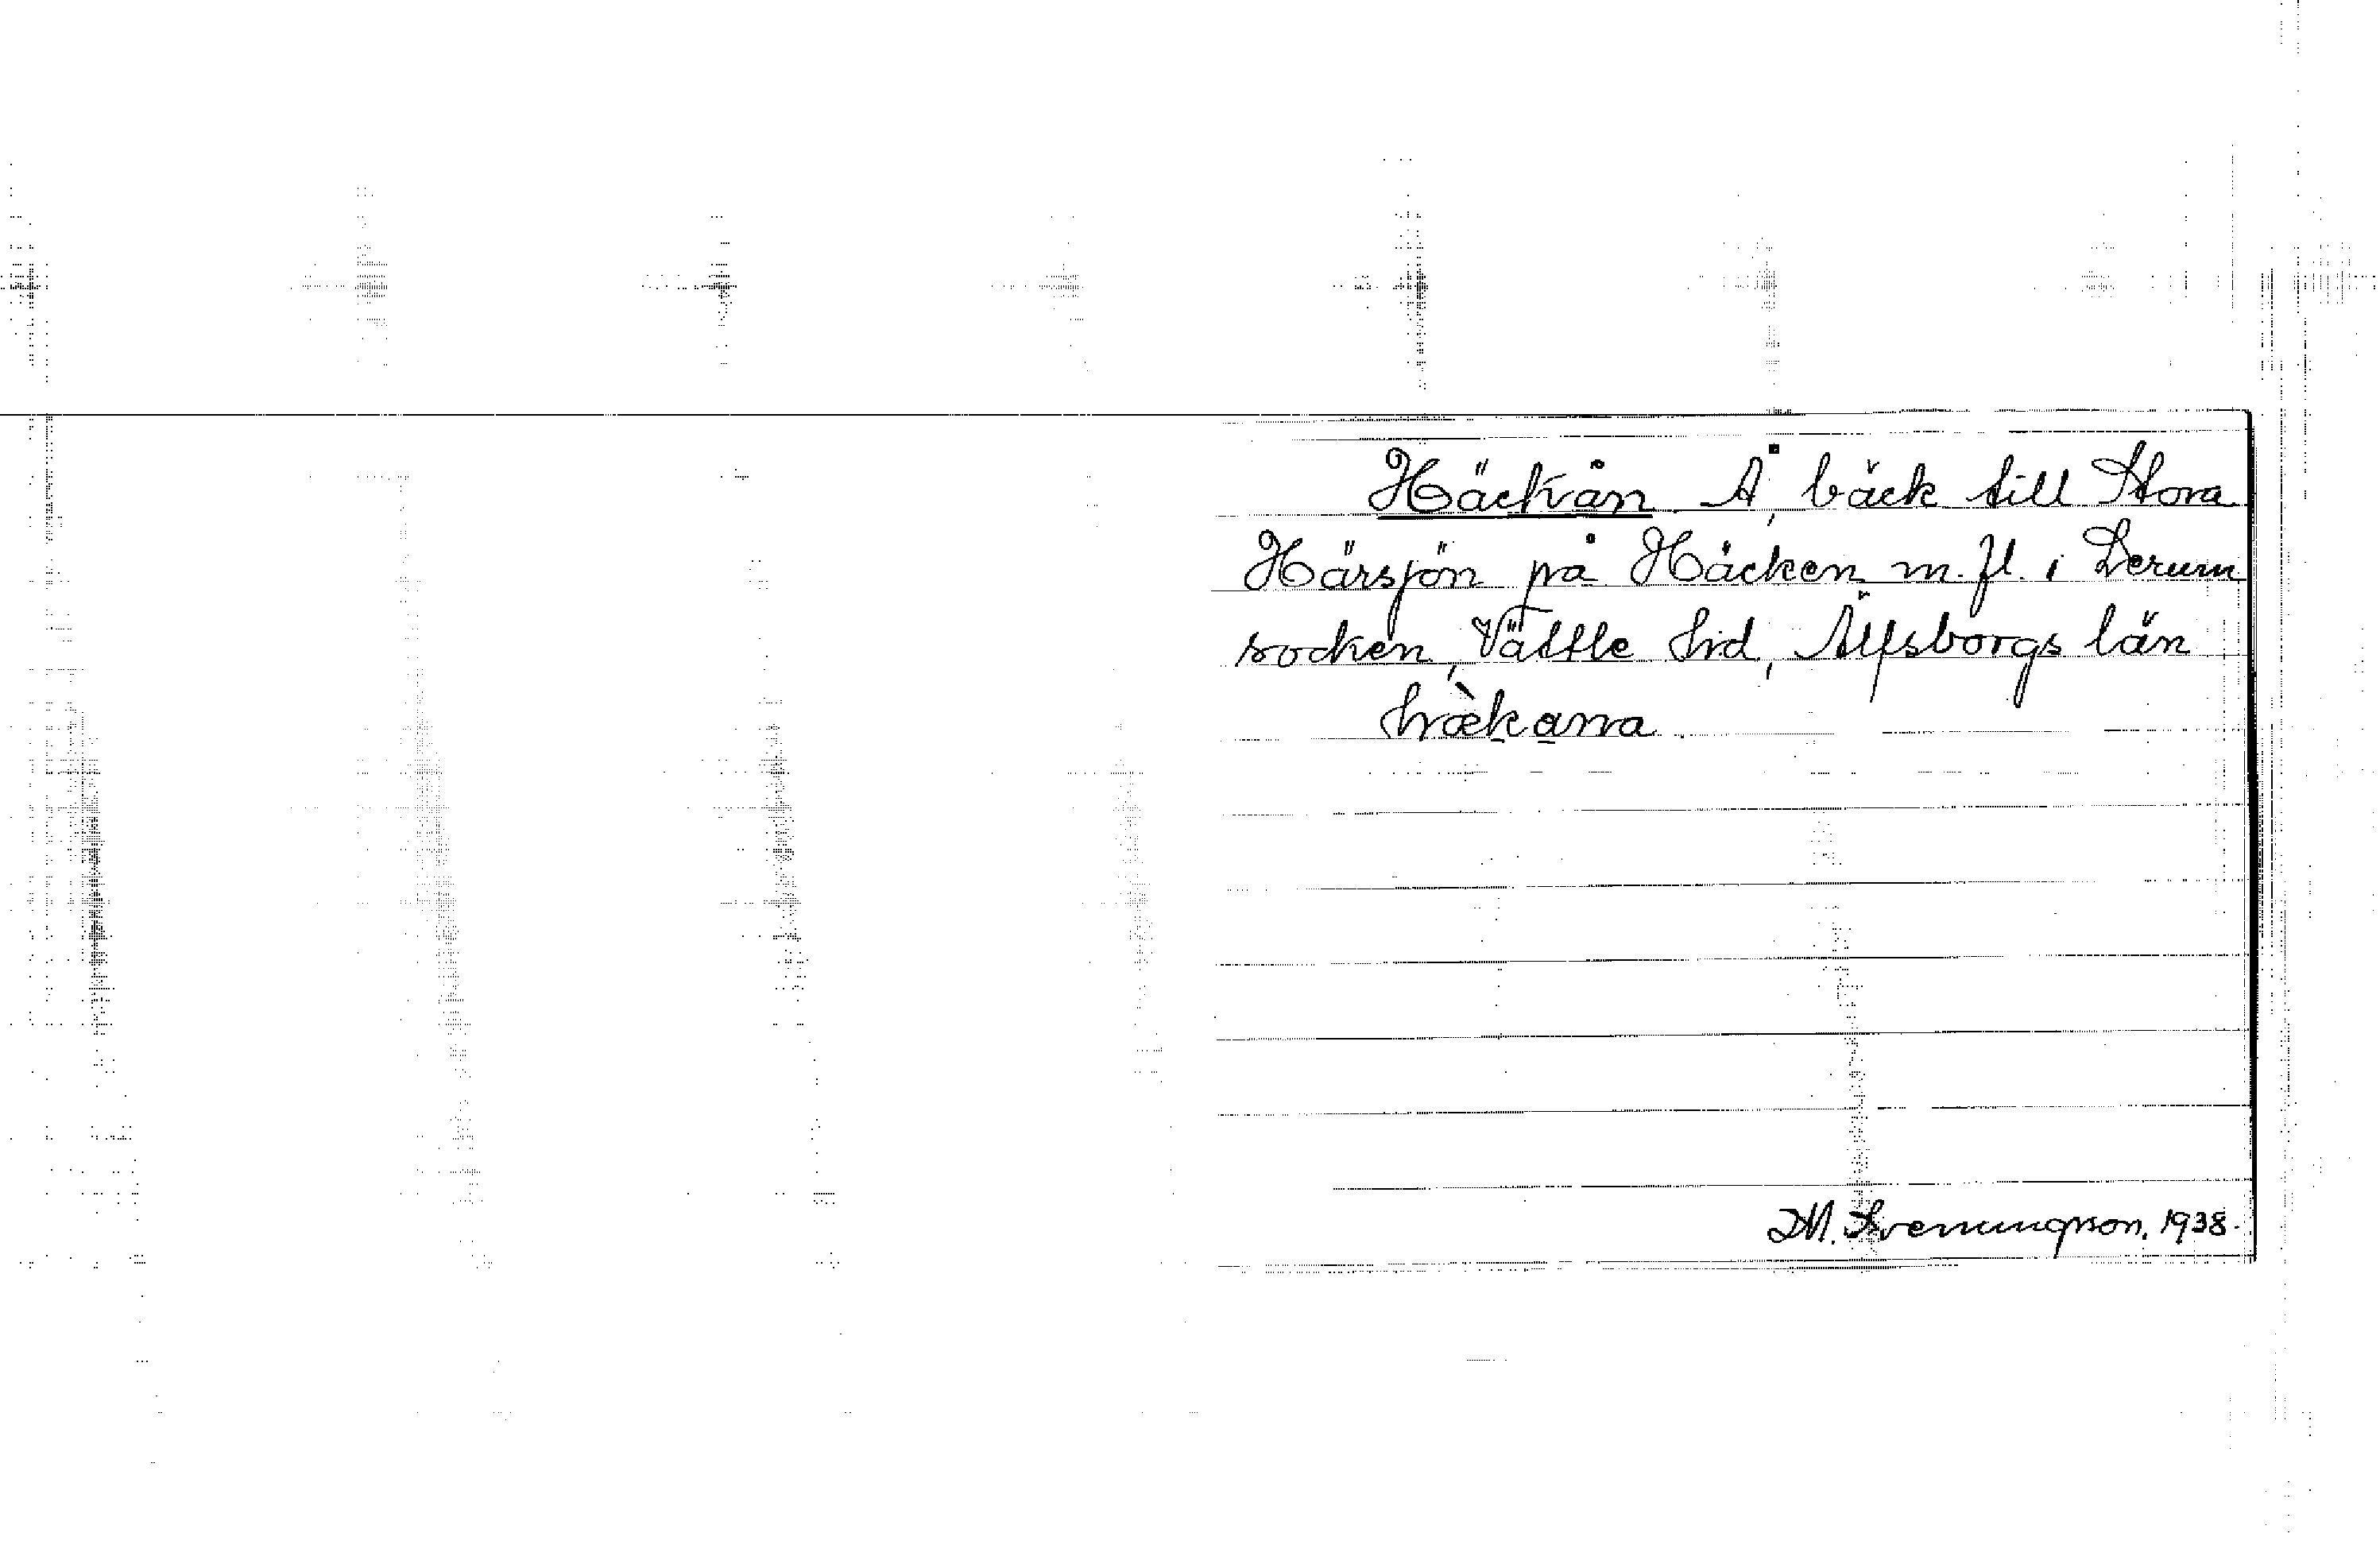 Häckån Å, bäck till Stora
Härsjön på Häcken m.fl. i Lerum
socken, Vättle hd, Älfsborgs län
hæ̀kana
M. Svenungsson, 1938.